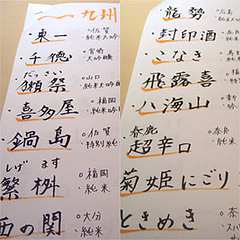 九州
・東一 ○佐賀 純米大吟
・千徳 ○宮崎 大吟醸
だっさい
・獺祭 ○山口 純米大吟
・喜多屋 ○福岡
・鍋島 ○佐賀 特別純
しげ ます
繁桝 ○福岡 純米
西の関 ○大分 純米
・龍勢 純米大吟
・封印酒
・こなき 純米
・飛露喜
・八海山
春鹿 ○奈良
超辛口 純米
菊姫にごり
ときめき